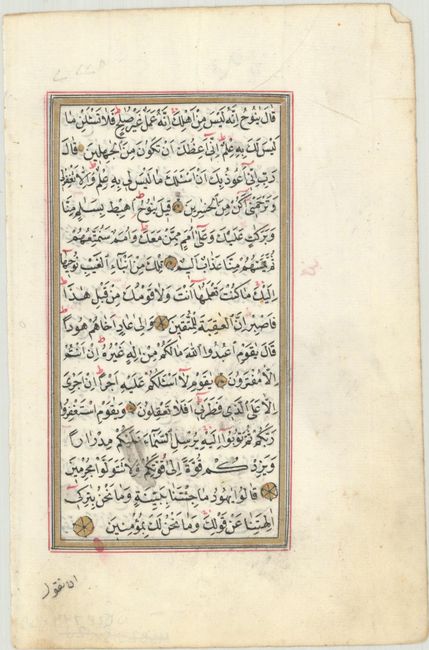 قَالَ يٰنُوحُ اِنَّهُ لَيْسَ مِنْ اَهْلِكَ اِنَّهُ عَمَلٌ غَيْرُ صَالِحٍ فَلَا تَسْئَلْنِ مَا
لَيْسَ لَكَ بِهِ عِلْمٌ اِنِّى اَعِظُكَ اَنْ تَكُونَ مِنَ الْجٰهِلِينَ قَالَ
رَبِّ اِنِّى اَعُوذُ بِكَ اَنْ اَسْئَلَكَ مَا لَيْسَ لِى بِهِ عِلْمٌ وَاِلَّا تَغْفِرْ لِى
وَتَرْحَمْنِى اَكُنْ مِنَ الْخٰسِرِينَ قِيلَ يٰنُوحُ اهْبِطْ بِسَلٰمٍ مِنَّا
وَبَرَكٰتٍ عَلَيْكَ وَعَلٰى اُمَمٍ مِمَّنْ مَعَكَ وَاُمَمٌ سَنُمَتِّعُهُمْ
ثُمَّ يَمَسُّهُمْ مِنَّا عَذَابٌ اَلِيمٌ تِلْكَ مِنْ اَنْبَاءِ الْغَيْبِ نُوحِيهَا
اِلَيْكَ مَا كُنْتَ تَعْلَمُهَا اَنْتَ وَلَا قَوْمُكَ مِنْ قَبْلِ هٰذَا
فَاصْبِرْ اِنَّ الْعَاقِبَةَ لِلْمُتَّقِينَ وَاِلٰى عَادٍ اَخَاهُمْ هُودًا
قَالَ يٰقَوْمِ اعْبُدُوا اللّٰهَ مَا لَكُمْ مِنْ اِلٰهٍ غَيْرُهُ اِنْ اَنْتُمْ
اِلَّا مُفْتَرُونَ يٰقَوْمِ لَا اَسْئَلُكُمْ عَلَيْهِ اَجْرًا اِنْ اَجْرِىَ
اِلَّا عَلَى الَّذِى فَطَرَنِى اَفَلَا تَعْقِلُونَ وَيٰقَوْمِ اسْتَغْفِرُوا
رَبَّكُمْ ثُمَّ تُوبُوا اِلَيْهِ يُرْسِلِ السَّمَاءَ عَلَيْكُمْ مِدْرَارًا
وَيَزِدْكُمْ قُوَّةً اِلٰى قُوَّتِكُمْ وَلَا تَتَوَلَّوْا مُجْرِمِينَ
قَالُوا يٰهُودُ مَا جِئْتَنَا بِبَيِّنَةٍ وَمَا نَحْنُ بِتَارِكِى
اٰلِهَتِنَا عَنْ قَوْلِكَ وَمَا نَحْنُ لَكَ بِمُؤْمِنِينَ
ان نقول